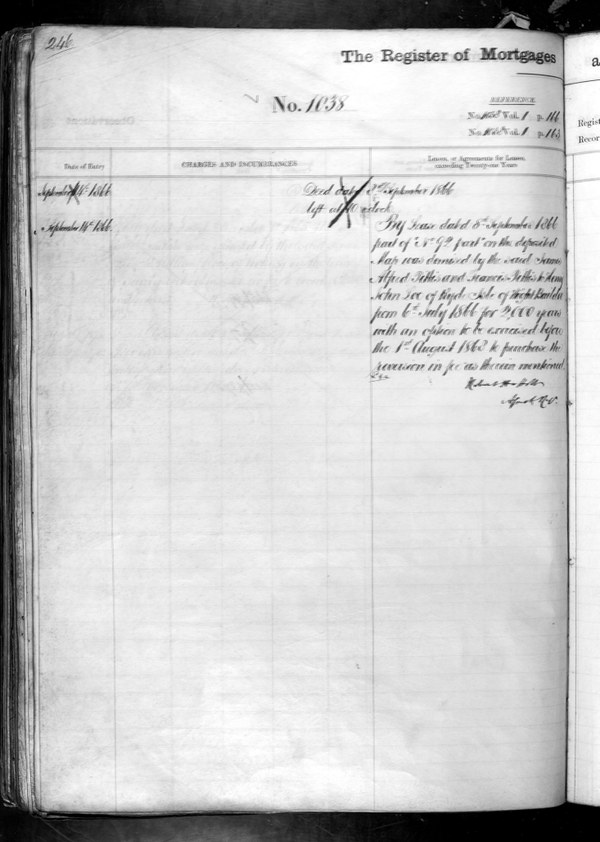 246
The Register of Mortgages
No. 1038
REFERENCE.
Vol. 1 p. 166
Vol. 1 p. 163
Date of Entry
CHARGES AND INCUMBRANCES
Leases, or Agreements for Leases,
exceeding Twenty-one Years
September 14th 1866 Deed dated 3rd September 1866
left at 10 o'clock
September 14th 1866 By Lease dated 3rd September 1866
part of "No 9 part" on the deposited
Map was demised by the said James
Alfred and Francis to Henry
John Loe of Ryde Isle of Wight Builder
from 6th July 1866 for years
with an option to be exercised before
the 1st August 1868 to purchase the
reversion in fee as therein mentioned
a
Regist
Recor